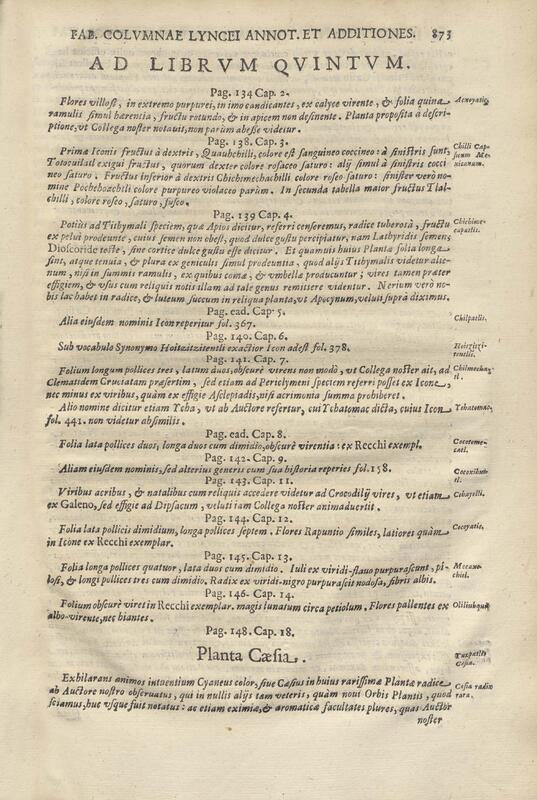 FAB. COLVMNAE LYNCEI ANNOT. ET ADDITIONES. 873
AD LIBRVM QVINTVM.
Pag. 134 Cap. 2.
Flores villosi, in extremo purpurei, in imo candicantes, ex calyce virente, & folia quina
ramulis simul hærentia, fructu rotundo, & in apicem desinente. Planta proposita à descri-
ptione, vt Collega noster notauit, non parùm abesse videtur.
Pag. 138. Cap. 3.
Chilli Cap-
sicum Me-
xicanum.
Primæ Iconis fructus à dextris, Quauhchilli, colore est sanguineo coccineo: à sinistris sunt
Totocuitlatl exigui fructus, quorum dexter colore rosaceo saturo: alij simul à sinistris cocci
neo saturo. Fructus inferior à dextris Chichimechachilli colore roseo saturo: sinister verò no-
mine Pochehoachilli colore purpureo violaceo parùm. In secunda tabella maior fructus Tlal-
chilli, colore roseo, saturo, fusco.
Pag. 139 Cap. 4.
Potiùs ad Tithymali speciem, quæ Apios dicitur, referri censeremus, radice tuberosa, fructu
ex pelui prodeunte, cuius semen non obest, quod dulce gustu percipiatur, nam Lathyridis semen,
Dioscoride teste, sine cortice dulce gustu esse dicitur. Et quamuis huius Plantæ folia longa
sint, atque tenuia, & plura ex geniculis simul prodeuntia, quod alijs Tithymalis videtur alie-
num, nisi in summis ramulis, ex quibus comæ, & vmbella producuntur; vires tamen præter
effigiem, & vsus cum reliquis notis illam ad tale genus remittere videntur. Nerium verò no-
bis lac habet in radice, & luteum succum in reliqua planta, vt Apocynum, veluti suprà diximus.
Pag. ead. Cap. 5.
Chilpatlis.
Alia eiusdem nominis Icon reperitur fol. 367.
Pag. 140. Cap. 6.
Sub vocabulo Synonymo Hoitzitzitentli exactior Icon adest fol. 378.
Pag. 141. Cap. 7.
Folium longum pollices tres, latum duos, obscurè virens non modò, vt Collega noster ait, ad
Clematidem Cruciatam præsertim, sed etiam ad Periclymeni speciem referri posset ex Icone,
nec minus ex viribus, quàm ex effigie Asclepiadis, nisi acrimonia summa prohiberet.
Alio nomine dicitur etiam Ycha, vt ab Auctore refertur, cui Ychatomac dicta, cuius Icon
fol. 441. non videtur absimilis.
Pag. ead. Cap. 8.
Folia lata pollices duos, longa duos cum dimidio, obscurè virentia: ex Recchi exempl.
Pag. 142. Cap. 9.
Aliam eiusdem nominis, sed alterius generis cum sua historia reperies fol. 158.
Pag. 143. Cap. 11.
Viribus acribus, & natalibus cum reliquis accedere videtur ad Crocodilij vires, vt etiam
ex Galeno, sed effigie ad Dipsacum, veluti iam Collega noster animaduertit.
Pag. 144. Cap. 12.
Cocoyatic.
Folia lata pollicis dimidium, longa pollices septem. Flores Rapuntio similes, latiores quàm
in Icone ex Recchi exemplar.
Pag. 145. Cap. 13.
Folia longa pollices quatuor, lata duos cum dimidio. Iuli ex viridi-flauo purpurascunt, pi-
losi, & longi pollices tres cum dimidio. Radix ex viridi-nigro purpurascit nodosa, fibris albis.
Pag. 146. Cap. 14.
Folium obscurè viret in Recchi exemplar. magis lunatum circa petiolum. Flores pallentes ex
albo-virente, nec hiantes.
Pag. 148. Cap. 18.
Planta Cæsia.
Cæsia radix
rara.
Exhilarans animos intuentium Cyaneus color, siue Cæsius in huius rarissimæ Plantæ radice
ab Auctore nostro obseruatus, qui in nullis alijs tam veteris, quàm noui Orbis Plantis, quod
sciamus, huc vsque fuit notatus: ac etiam eximiæ, & aromaticæ facultates plures, quas Auctor
noster